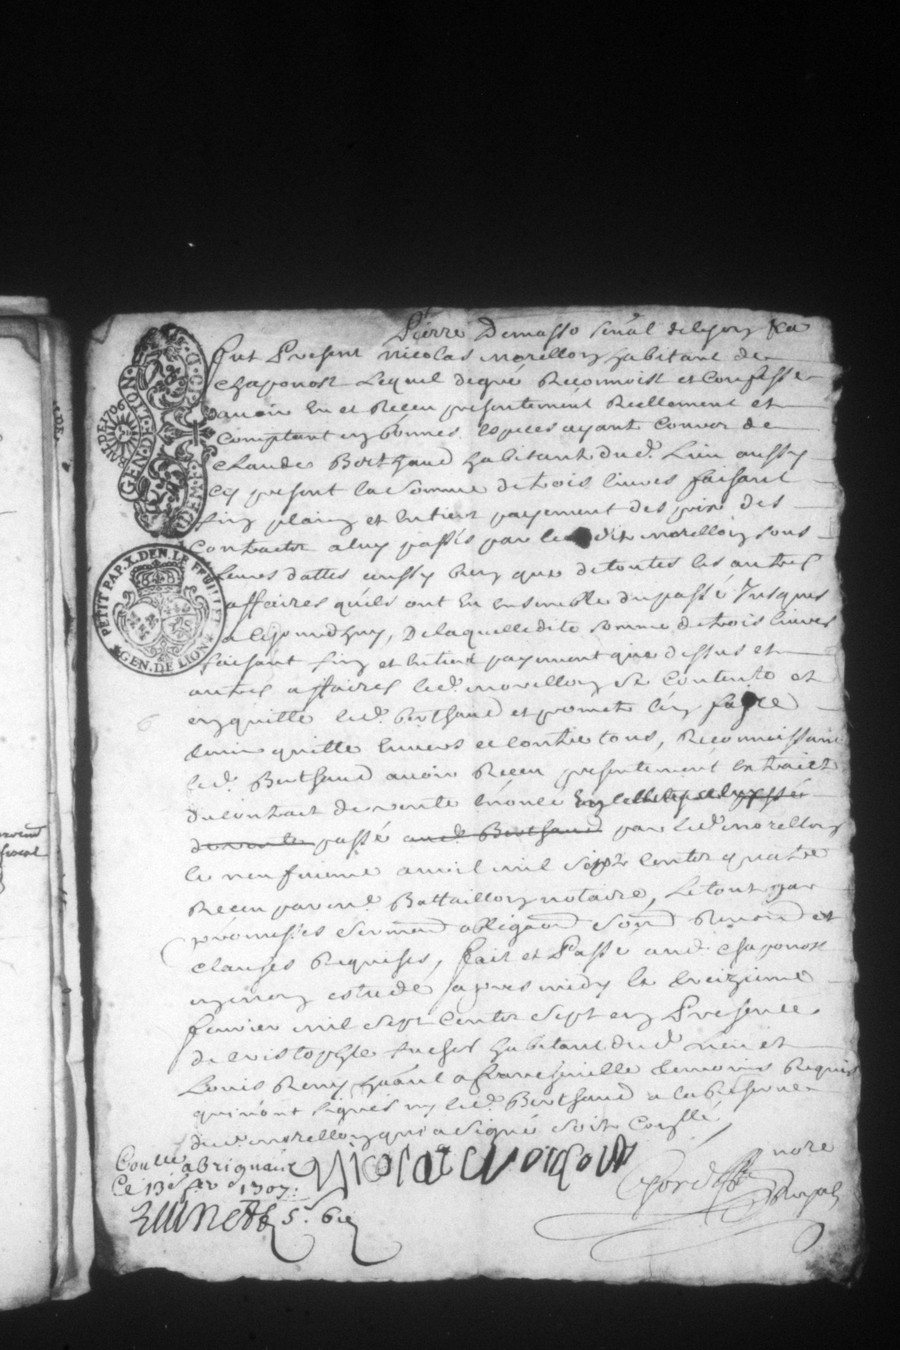 Pierre Demasso senal de lyon
Fut Present nicolas morellon habitant de
chaponost Lequel de gré Reconnoist et Confesse
avoir Eu et Receu presentement Reellement et
Comptant en bonnes Especes ayant Convor de
Claude Berthaud habitant dud. Lieu aussy
Cy present la somme de trois livres faisant
fin plain et Entier payement des prix des
Contractz a luy passés par le dit morellon sous
Leurs dattes aussy bien que de toutes les autres
affaires qu'ils ont Eu Ensemble du passé Jusques
a Lejourdhuy, De laquelle dite somme de trois livres
faisant fin et Entier payement que dessus et
autres affaires led. morellon se Contente et
en quitte led. berthaud et promet l'en faire
tenir quitte Envers et Contre tous, Reconnoissant
led. Berthaud avoir Receu presentement Extraict
du Contract de vente Enoncé
de vente passé aud. Berthaud par led. morellon
le neufvieme avril mil sept Centz quatre
Receu par me. Battaillon notaire, Le tout par
promesses serment obligaon soub Renon et
clauses Requises, fait et Passé aud. chaponost
en mon estude apres midy le treizieme
fevrier mil sept Centz sept en Presence
de cristophle habitant dud. Lieu et
Louis Remy a francheville temoins Requis
qui n'ont signés ny led. Berthaud a la Reserve
dud. morellon qui a signé soit Conllé
Conllé a Brignais
Ce 13e fevr 1707
5s 6d
Nicolas Morelon
nore
Royal
GEN. DE LION
PETIT PAP. X. DEN. LE FEUILLET
GEN. DE LION